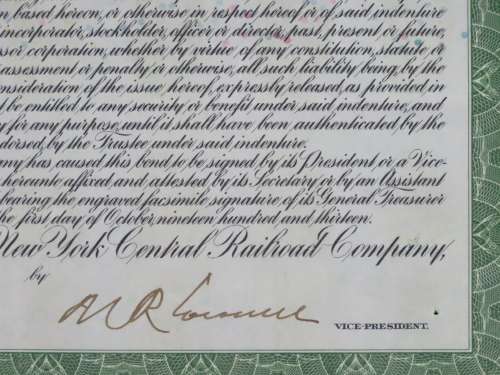 n based hereon, or otherwise in respect hereof or if said indenture
incorporator, stockholder, officer or director, past, present or future,
ssor corporation, whether by virtue of any constitution, statute or
assessment or penalty or otherwise, all such liability being, by the
onsideration of the issue hereof, expressly released, as provided in
t be entitled to any security or benefit under said indenture, and
y for any purpose, until it shall have been authenticated by the
dorsed, by the Trustee under said indenture.
any has caused this bond to be signed by its President or a Vice-
hereunto affixed and attested by its Secretary or by an Assistant
bearing the engraved facsimile signature of its General Treasurer
the first day of October, nineteen hundred and thirteen.
New York Central Railroad Company,
by
VICE-PRESIDENT.